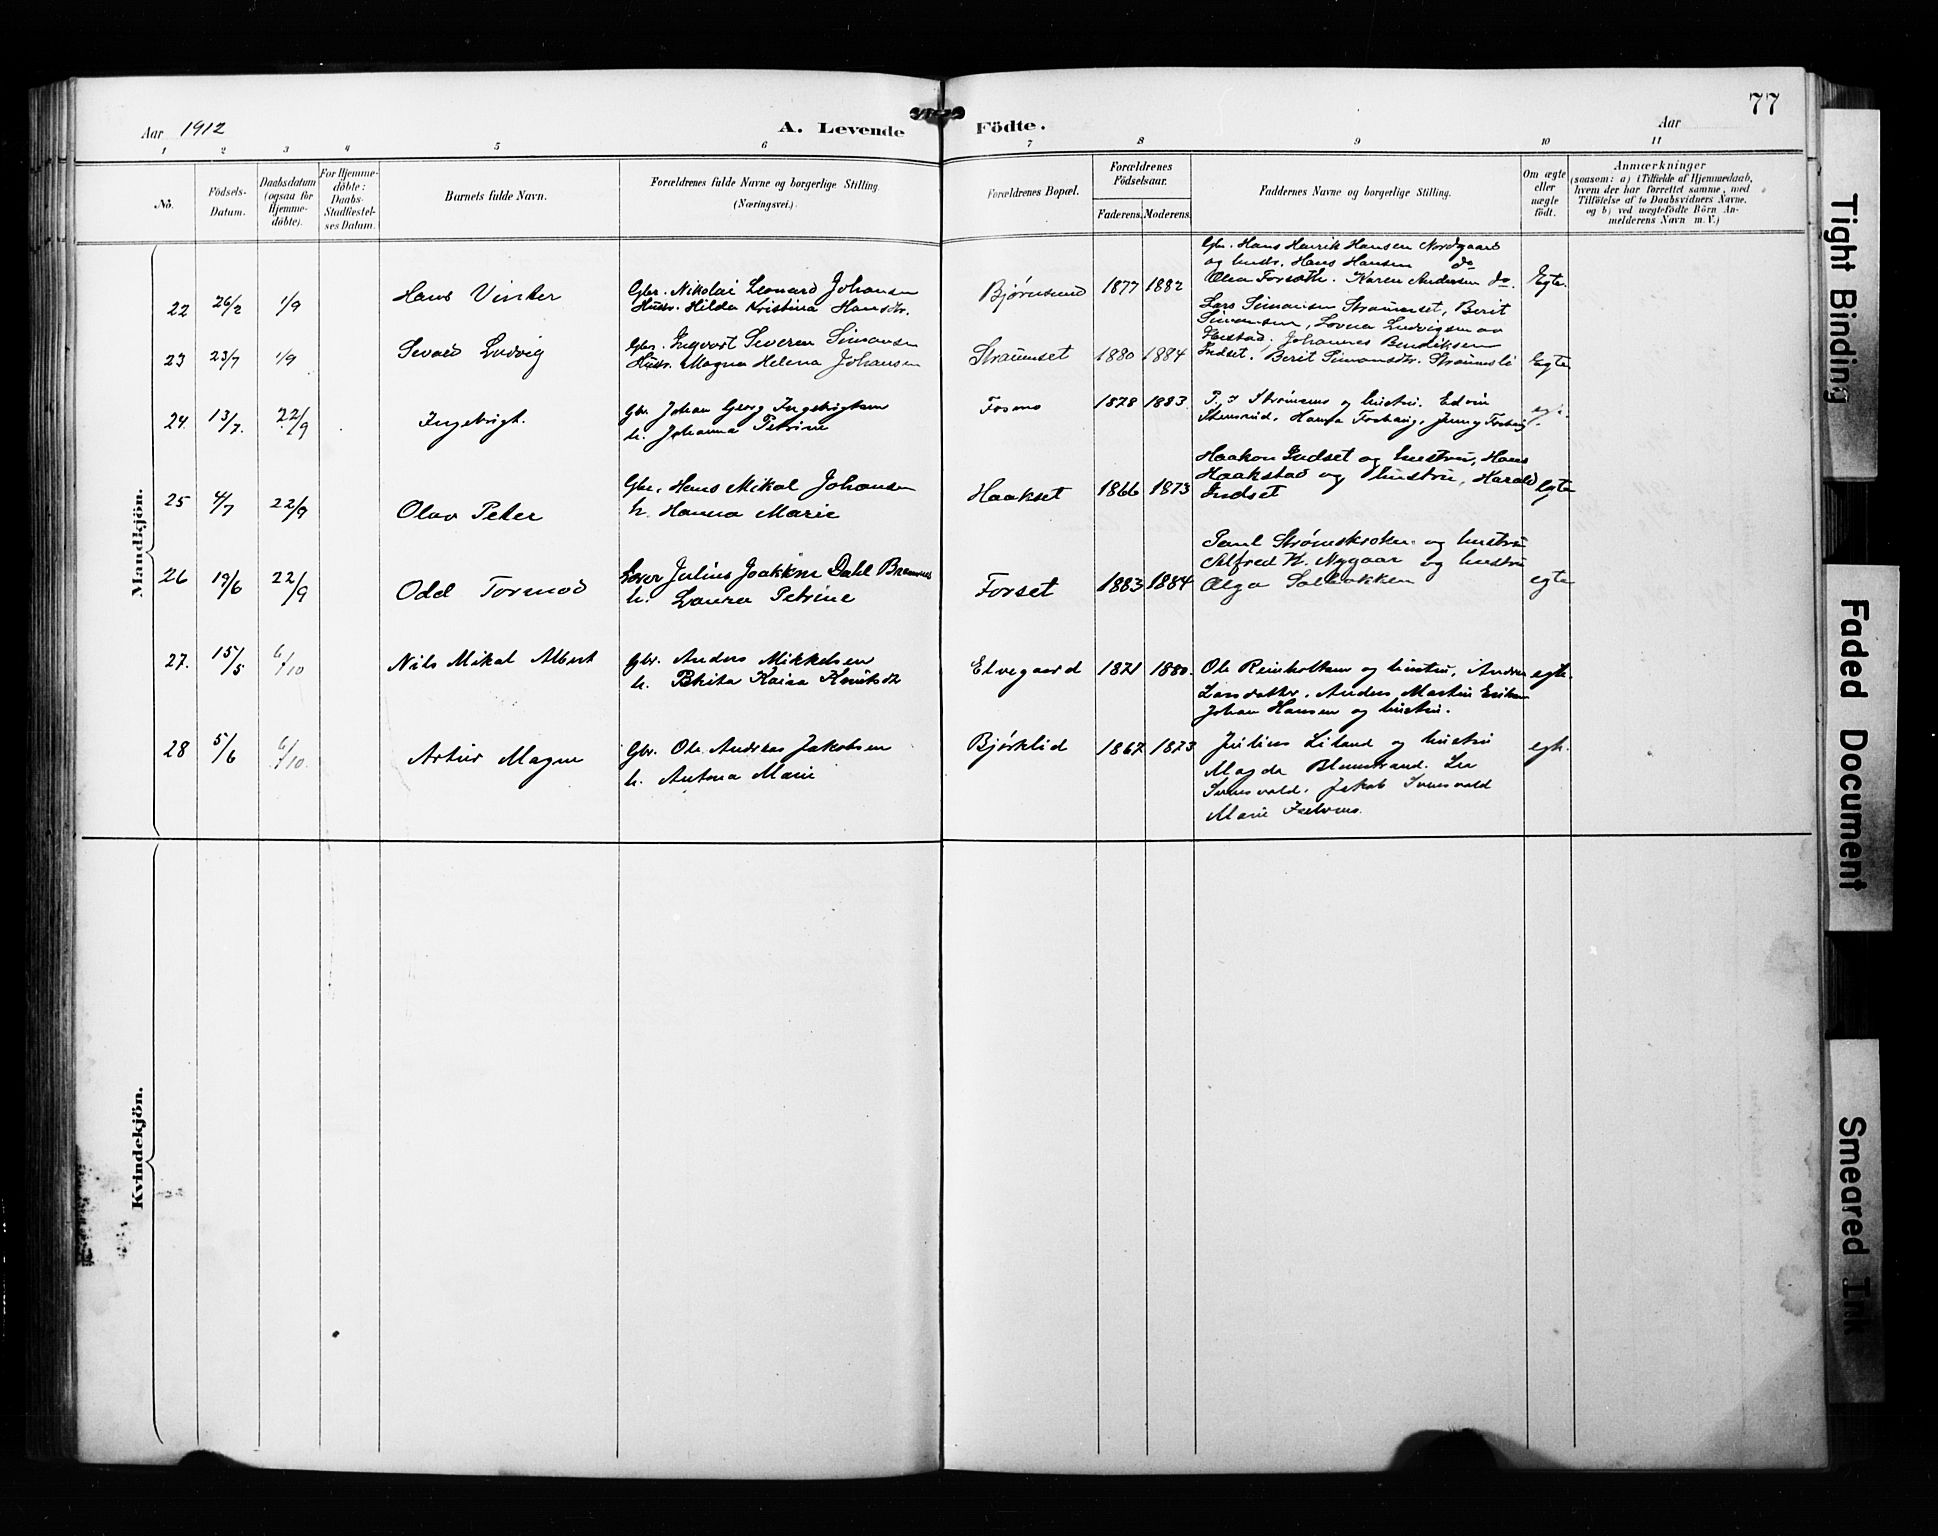 77
Aar 1912
A. Levende Födte.
Aar
1 2 3 4 5 6 7 8 9 10 11
No.
Födsels-Datum.
Daabsdatum (ogsaa for Hjemme-döbte).
For Hjemme-döbte: Daabs-Stadfæstel-ses Datum.
Barnets fulde Navn.
Forældrenes fulde Navne og borgerlige Stilling. (Næringsvei.)
Forældrenes Bopæl.
Forældrenes Födselsaar.
Faderens. Moderens.
Faddernes Navne og borgerlige Stilling.
Om ægte eller uægte födt.
Anmærkninger
(saasom: a) i Tilfælde af Hjemmedaab,
hvem der har forrettet samme, med
Tilföielse af to Daabsvidners Navne.
og b) ved uægtefödte Börn An-
melderens Navn m. V.)
Mandkjön.
22 26/2 1/9 Hans Vinker Gbr. Nikolai Leonard Johansen
Hustr. Hilda Kristina Hansdtr.
Bjørnsund 1877 1882
Gbr. Hans Henrik Hansen Nordgaard
og hustr. Hans Hansen do
Olea Forsæth. Karen Andersen do. Egte.
23 23/7 1/9 Sevald Ludvig Gbr. Ingvart Severin Simonsen
Hustr. Magna Helena Johansen
Straumset 1880 1884
Lars Simonsen Straumset, Berit
Simonsen, Lovna Ludvigsen
Johannes Bendiksen
Indset. Berit Simonsdtr. Straumsli Egte
24. 13/7. 22/9 Ingebrigt. Gbr. Johan Georg Ingebrigtsen
h. Johanna Petrine
Fosmo 1878 1883
og hustru. Edvin
25 4/7 22/9 Olav Peter Gbr. Hans Mikal Johansen
h. Hanna Marie
Haakset 1866 1873
Haakon Indset og hustru, Hans
Haakstad og hustru, Harald
Indset egte
26 19/6 22/9 Odd Tormod Julius Joakkim Dahl
h. Laura Petrine
Forset 1883 1884
Paul og hustru
Alfred H. Nygaar og hustru
Olga Solbakken egte
27. 15/5 6/10 Nils Mikal Albert Gbr. Anders Mikkelsen
h. Brita Kaisa
Elvegaard 1871 1880.
Ole Reinholtsen og hustru, Andrea
Larsdatter. Anders Martin Eriksen
Johan Hansen og hustru. egte.
28 5/6 6/10. Artur Magne Gbr. Ole Andreas Jakobsen
h. Antona Marie
Bjørklid 1867 1873
Julius Liland og hustru
Magda Blomstrand. Lea
Jakob
Marie egte.
Kvindekjön.
Tight Binding
Faded Document
Smeared Ink